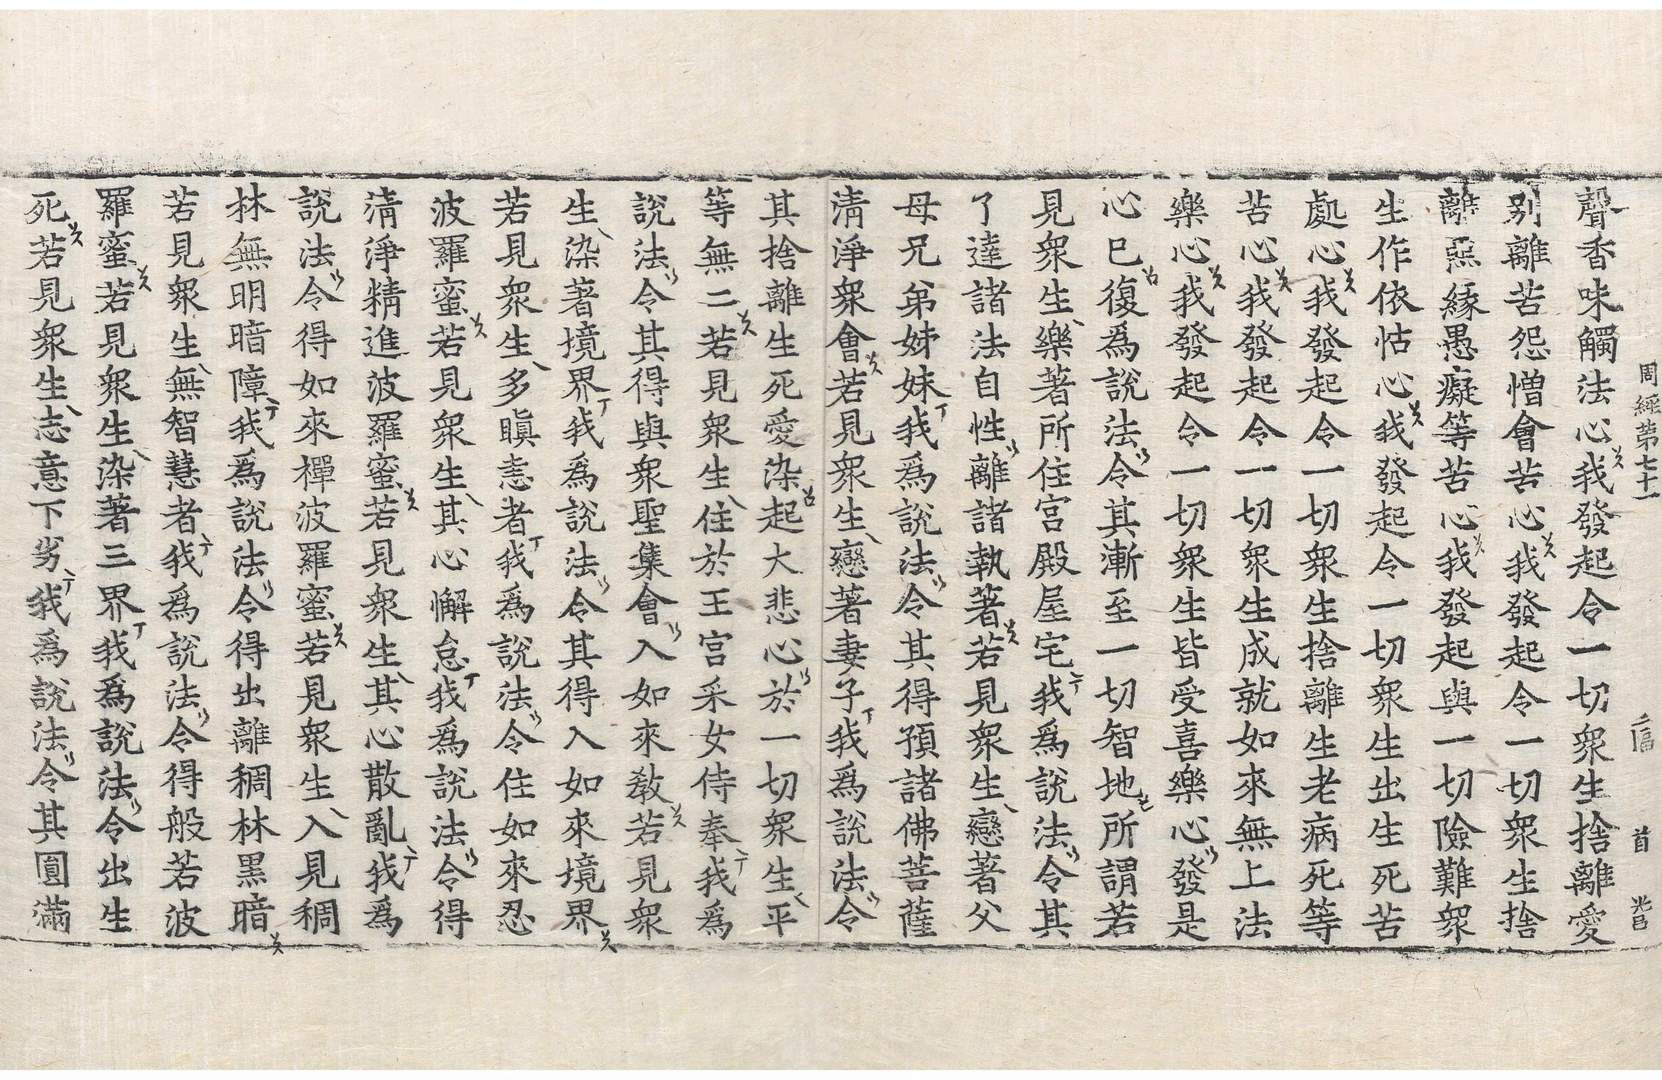 周經第七十一 首
聲香味觸法心我發起令一切衆生捨離愛
別離苦怨憎會苦心我發起令一切衆生捨
離惡緣愚癡等苦心我發起與一切險難衆
生作依怙心我發起令一切衆生出生死苦
處心我發起令一切衆生捨離生老病死等
苦心我發起令一切衆生成就如來無上法
樂心我發起令一切衆生皆受喜樂心發是
心已復爲說法令其漸至一切智地所謂若
見衆生樂著所住宮殿屋宅我爲說法令其
了達諸法自性離諸執著若見衆生戀著父
母兄弟姊妹我爲說法令其得預諸佛菩薩
清淨衆會若見衆生戀著妻子我爲說法令
其捨離生死愛染起大悲心於一切衆生平
等無二若見衆生住於王宮采女侍奉我爲
說法令其得與衆聖集會入如來教若見衆
生染著境界我爲說法令其得入如來境界
若見衆生多瞋恚者我爲說法令住如來忍
波羅蜜若見衆生其心懈怠我爲說法令得
清淨精進波羅蜜若見衆生其心散亂我爲
說法令得如來禪波羅蜜若見衆生入見稠
林無明暗障我爲說法令得出離稠林黑暗
若見衆生無智慧者我爲說法令得般若波
羅蜜若見衆生染著三界我爲說法令出生
死若見衆生志意下劣我爲說法令其圓滿